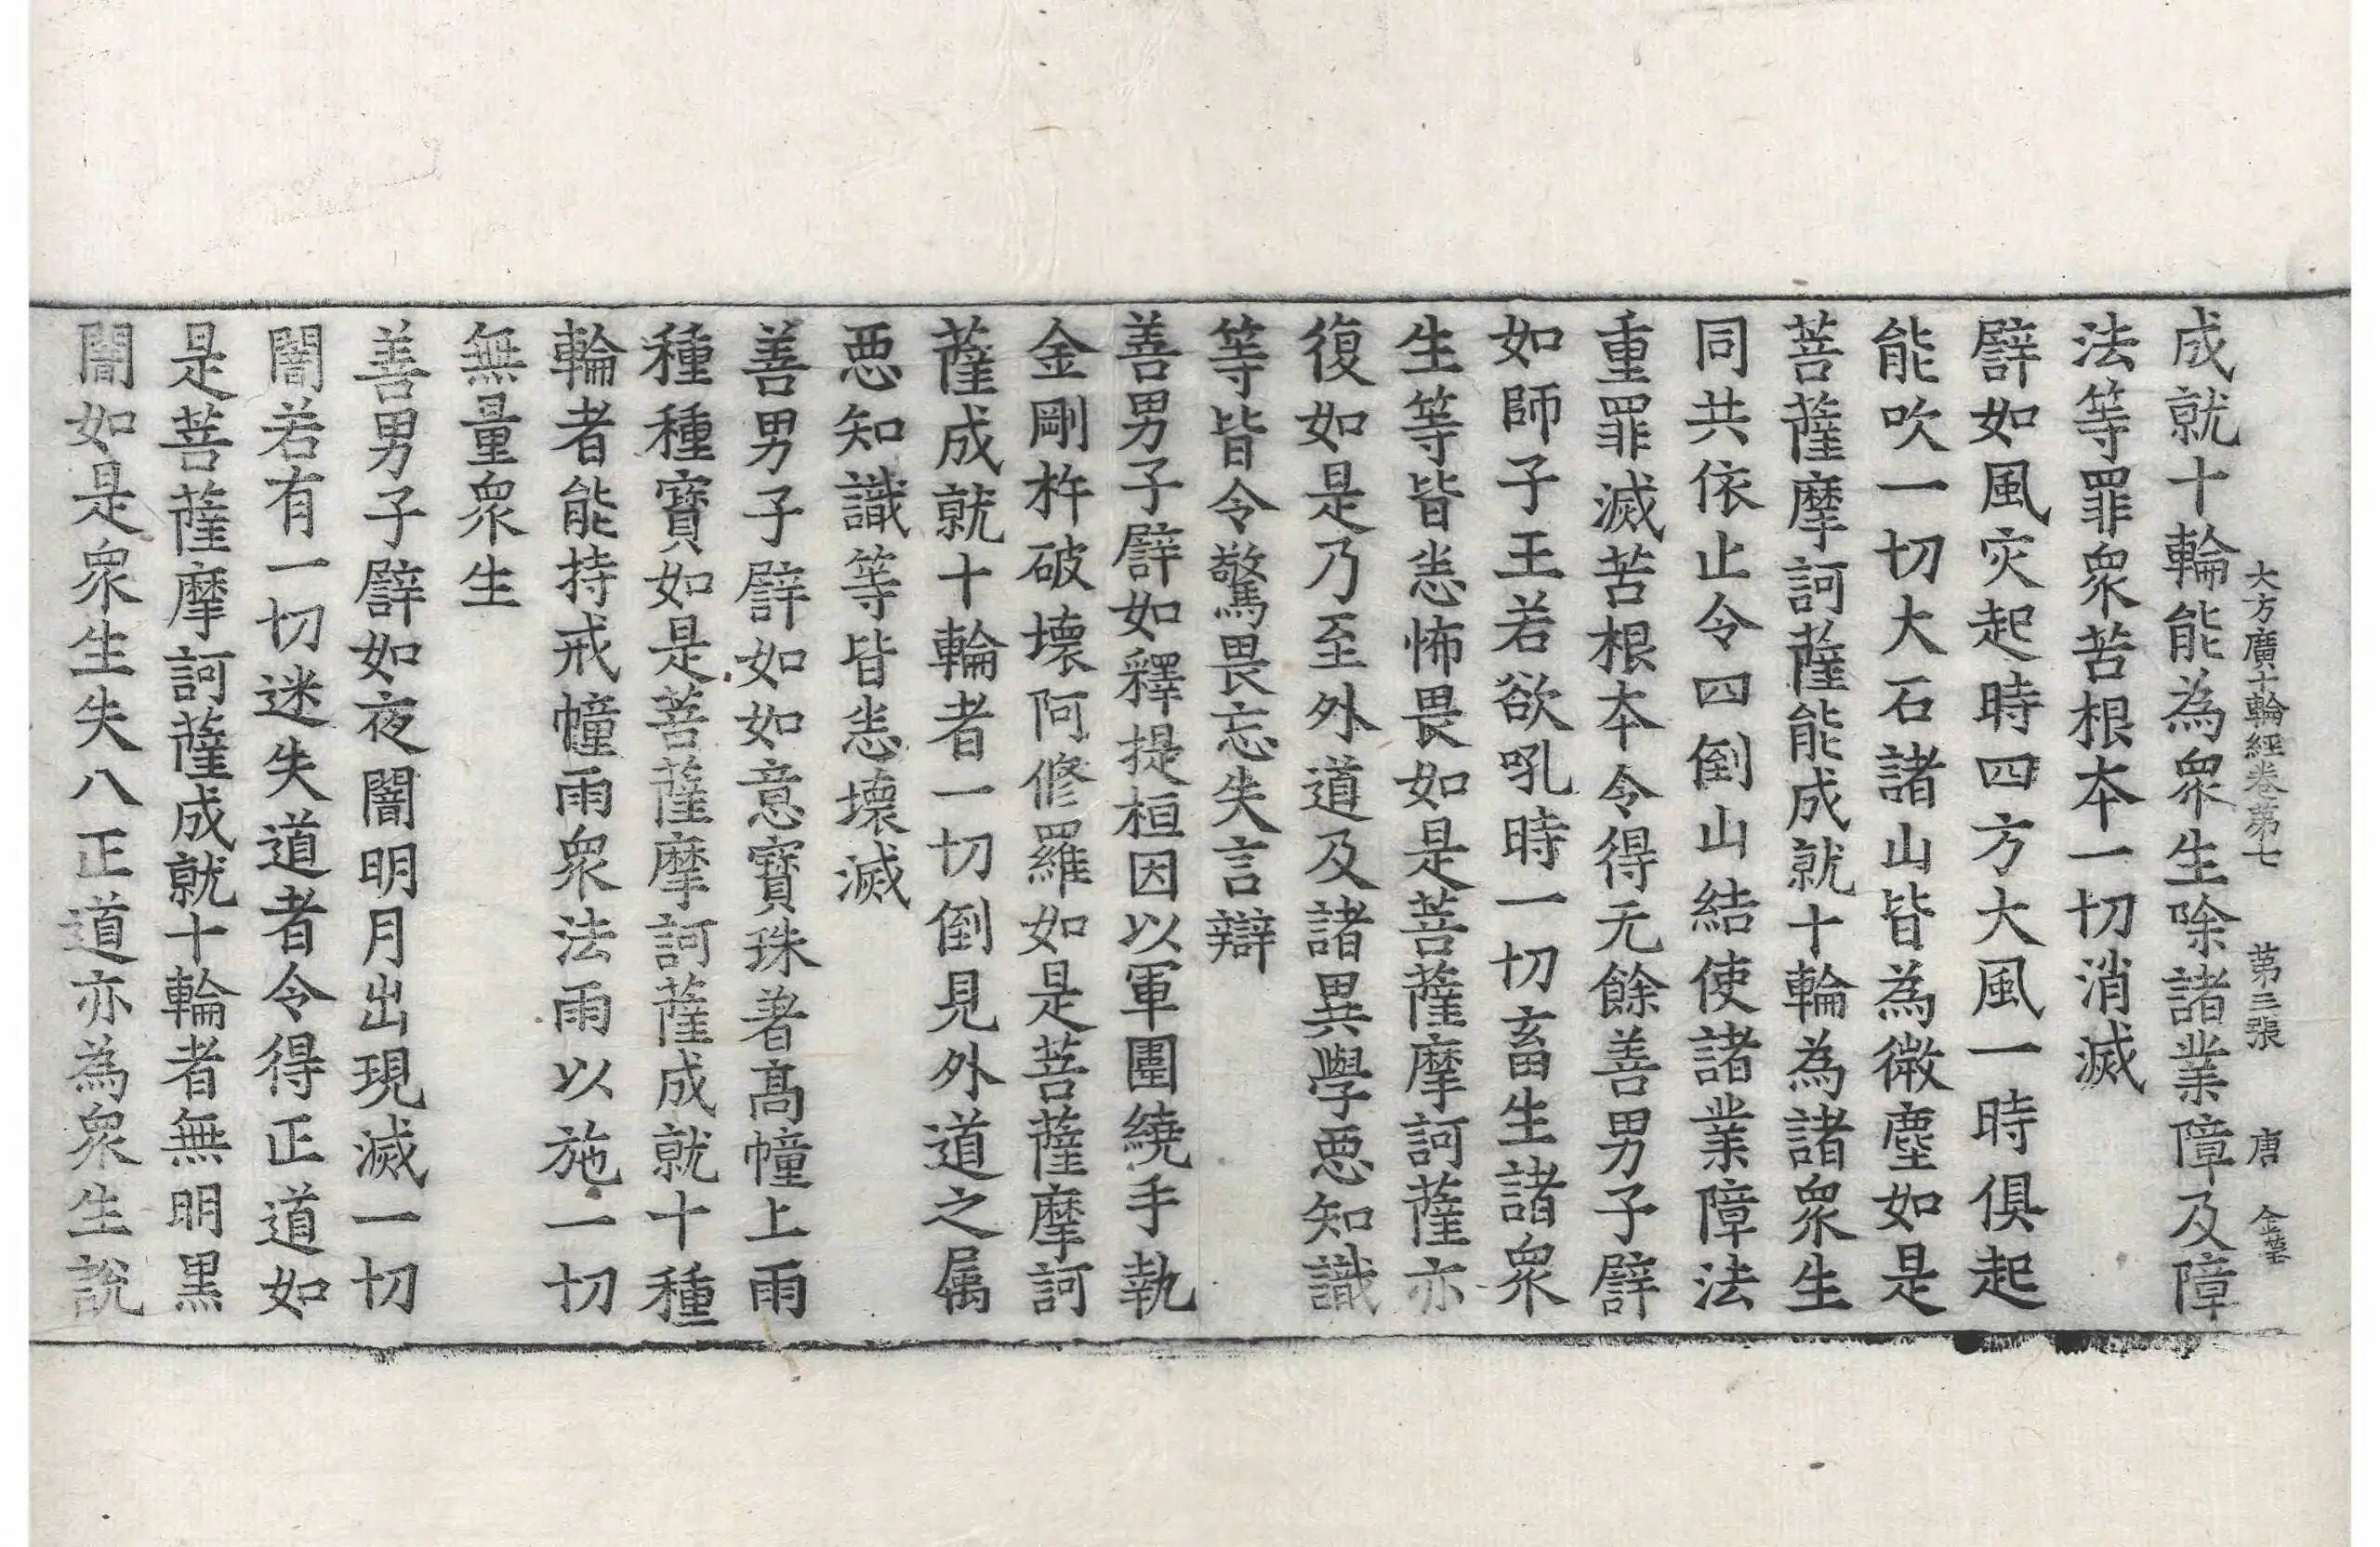 大方廣十輪經卷第七 第三張 唐 金堂
成就十輪能為衆生除諸業障及障
法等罪衆苦根本一切消滅
譬如風灾起時四方大風一時俱起
能吹一切大石諸山皆為微塵如是
菩薩摩訶薩能成就十輪為諸衆生
同共依止令四倒山結使諸業障法
重罪滅苦根本令得无餘善男子譬
如師子王若欲吼時一切畜生諸衆
生等皆悉怖畏如是菩薩摩訶薩亦
復如是乃至外道及諸異學惡知識
等皆令驚畏忘失言辯
善男子譬如釋提桓因以軍圍繞手執
金剛杵破壞阿修羅如是菩薩摩訶
薩成就十輪者一切倒見外道之属
惡知識等皆悉壞滅
善男子譬如如意寶珠著髙幢上雨
種種寶如是菩薩摩訶薩成就十種
輪者能持戒幢雨衆法雨以施一切
無量衆生
善男子譬如夜闇明月出現滅一切
闇若有一切迷失道者令得正道如
是菩薩摩訶薩成就十輪者無明黑
闇如是衆生失八正道亦為衆生說